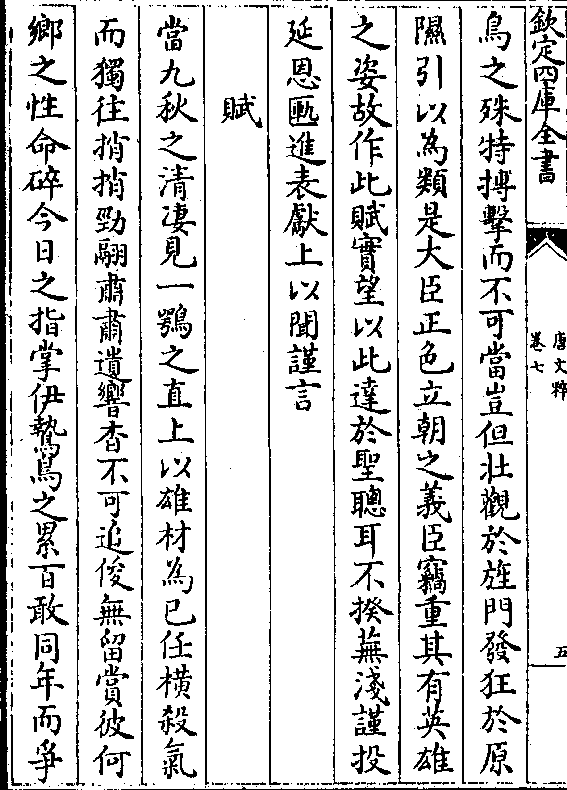 欽定四庫全書
唐文粹
卷七
五
鳥之殊特搏擊而不可當豈但壯觀於旌門發狂於原
隰引以為類是大臣正色立朝之義臣竊重其有英雄
之姿故作此賦實望以此達於聖聰耳不揆蕪淺謹投
延恩匭進表獻上以聞謹言
賦
當九秋之清凄見一鶚之直上以雄材為已任橫殺氣
而獨往捎捎勁翮肅肅遺響杳不可追俊無留賞彼何
鄉之性命碎今日之指掌伊鷙鳥之累百敢同年而爭